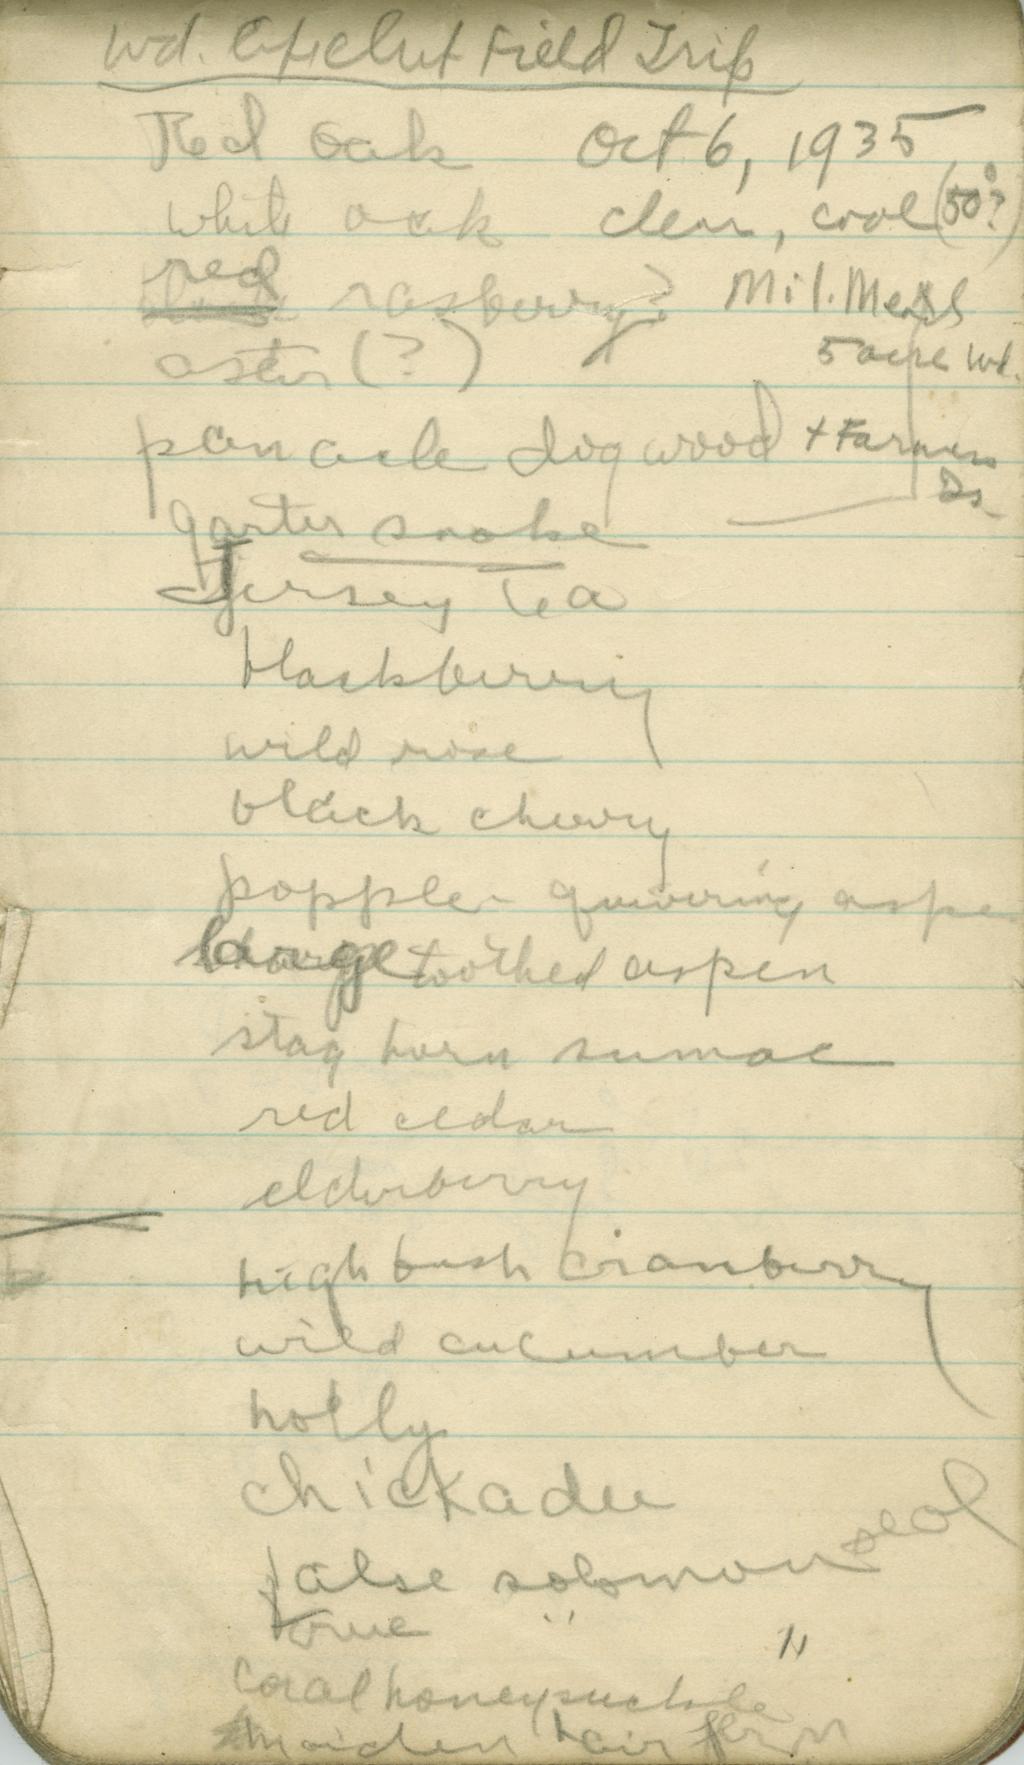 Wd. Field Trip
Red oak Oct 6, 1935
white oak clear, cool (50°?)
red rasberry? Mil. Men's
aster (?) 5 acre Wd.
panacle dogwood + Farmers
garter snake Ds
Jersey Tea
blackberry
wild rose
black cherry
popple - quivering aspe
large toothed aspen
stag horn sumac
red cedar
elderberry
high bush cranberry
wild cucumber
holly
chickadee
false solomon seal
true " "
coral honeysuckle
maiden hair fern